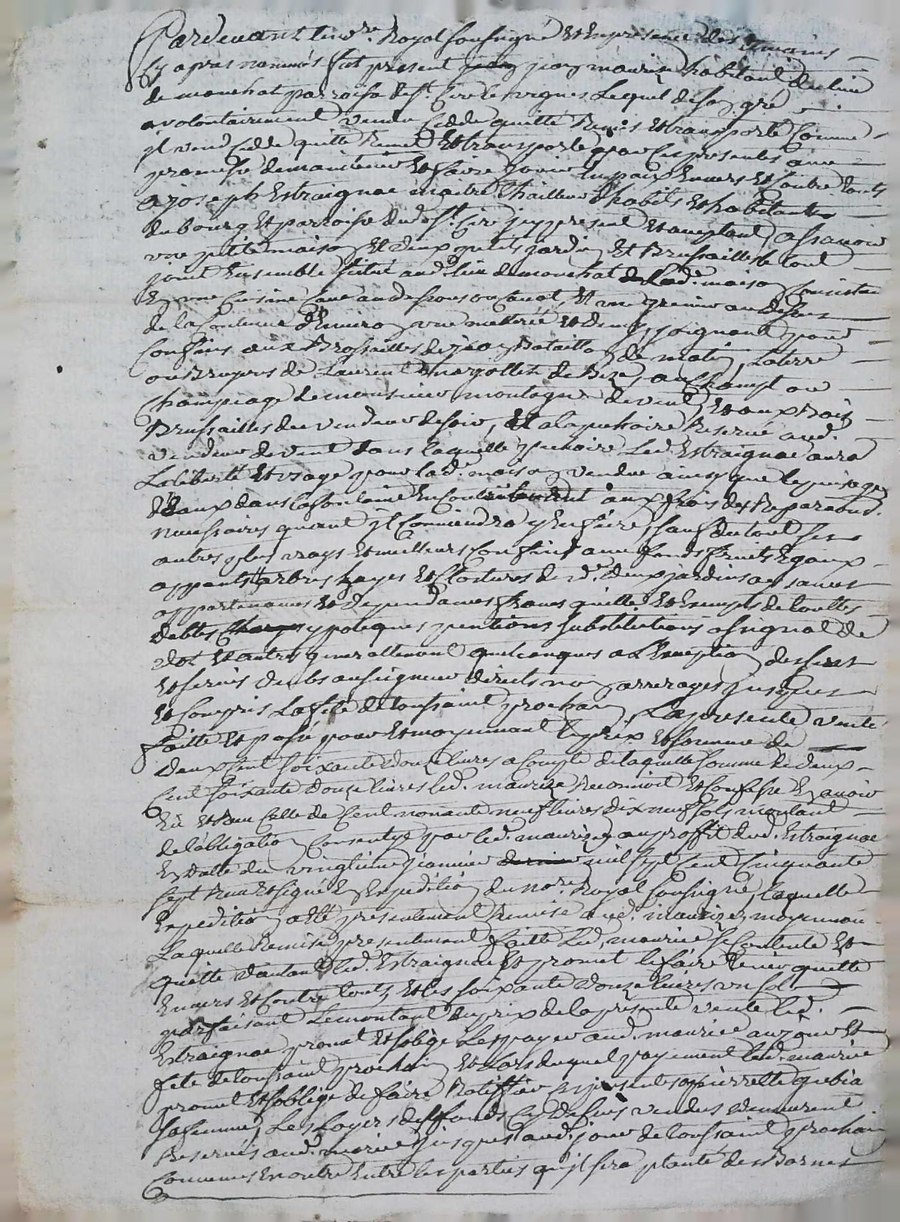 Pardevant le no.re Royal soussigné Et En presence des temoins
Cy apres nommés fut present jean maurize habitant du lieu
de monchat parroisse de S.t Cire les vignes Lequel de son gré
a volontairement vendu Cedde quitte Remis Et transporte Comme
jl vend Cedde quitte Remet Et transporte par Ces presentes avec
promesse de maintenir Et faire jouir En paix Envers Et Contre touts
a joseph Estraignac maitre thailleur d'habits Et habitant
du bourg Et parroisse dud. S.t Cire jcy present Et acceptant assavoir
une petite maison Et deux petits jardin Et Brussailles le tout
joint Ensemble situé aud. lieu de monchat Lad. maison Consistant
En une Cuisine Cave au dessous ou Cavat, Et un grenier au dessus
de la Contenue d'Enviro une metterée Et demy joignant pour
Confins aux Brossailles de jean Bataillon de matin, La terre
ou Bruyere de Laurent margottet de Bize, au Champt ou
Champéage de monsieur montagne de vent, Et aux Bois
Brussailles du vendeur de soir, Et a la pechoire Reservé aud.
vendeur de vent dans laquelle pechoire Led. Estraignac aura
La liberté Et usage pour lad. maison vendue ainsy que le puisage
d'Eaux dans la fontaine En Contribuant aux frais des Reparaons
necessaires quand jl Conviendra y En faire, sauf du tout ses
autres plus vrays Et meilleurs Confins avec fonds fruits Egaux
appants arbres hayes Et Clotures de sd. deux jardins aysances
appartenances Et dependances francs quitte Et Exempts de touttes
debtes ypoteques pentions substitutions assignal de
dot Et autres generallement quelconques a L'Exception des Cens
Et servis dubs au seigneur directs non arrerages jusques
Et Compris La fete de toussaint prochain, La presente vente
faitte Et passé pour Et moyennant le prix Et somme de
deux Cent soixante douze livres a Compte de laquelle somme de deux
Cent soixante douze livres led. maurize Reconnoit Et Confesse En avoir
Eü Et Reçu Celle de Cent nonante neuf livres dix neuf sols montant
de l'obligation Consentye par led. maurize au proffit dud. Estraignac
En datte du vingtieme janvier mil sept Cent Cinquante
sept Reçue Et signé En Expedition du nore Royal soussigné, laquelle
Expedition a Eté presentement Remise aud. maurize, moyennant
Laquelle Remise presentement faitte Led. maurize se Contente Et
quitte d'autant led. Estraignac Et promet le faire tenir quitte
Envers Et Contre touts, Et les soixante douze livres un sol
parfaisant Le montant du prix de la presente vente led.
Estraignac promet Et s'oblige Les payer aud. maurize au jour Et
fete de toussaint prochain Et Lors duquel payement led. maurize
promet Et s'oblige de faire Ratiffier Ces presentes a pierrette quebia
sa femme, Les loyers des fonds Cy dessus vendus demeurent
Reservés aud. maurize jusques aud. jour de toussaint prochain
Convenus En outre Entre les parties qu'jl sera planté des Bornes